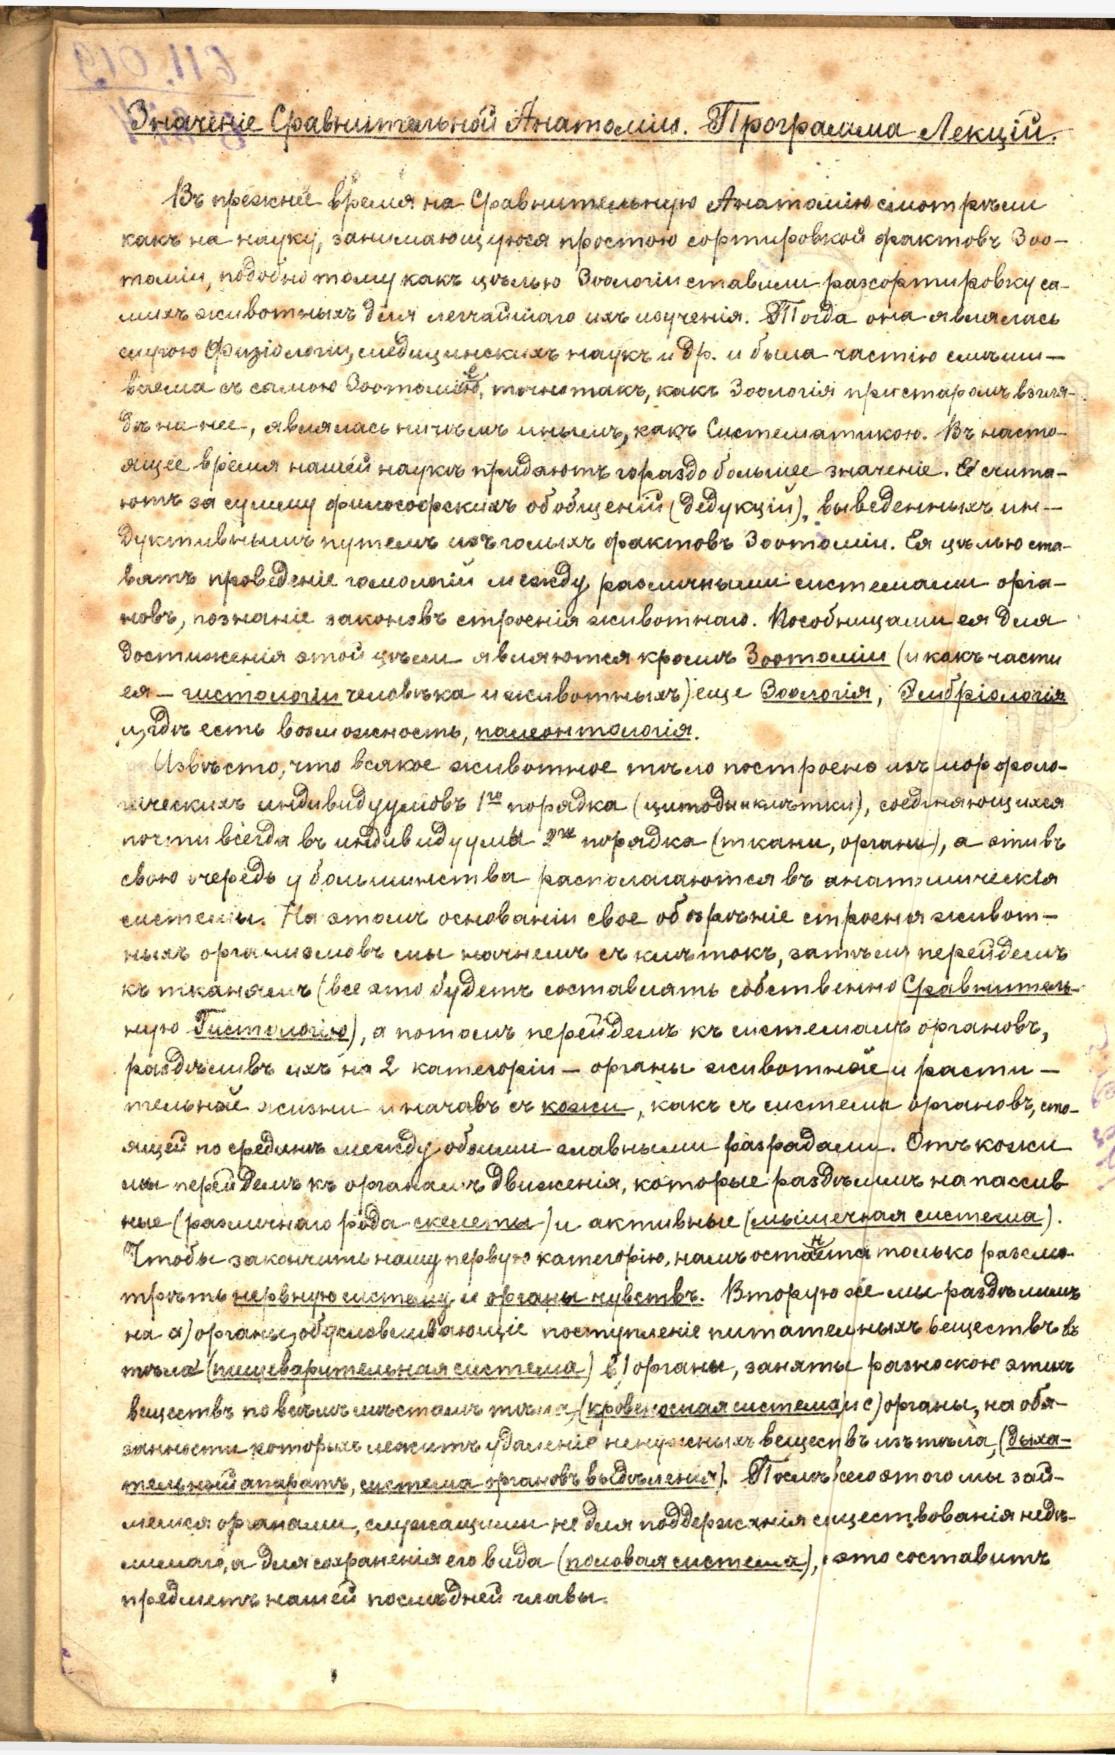 Значеніе Сравнительной Анатоміи. Программа Лекцій.
Въ прежнее время на Сравнительную Анатомію смотрѣли
какъ на науку, занимающуюся простою сортировкой фактовъ Зоо-
томіи, подобно тому какъ цѣлью Зоологіи ставили разсортировку са-
михъ животныхъ для легчайшаго ихъ изученія. Тогда она являлась
слугою Физіологіи, медицинскихъ наукъ и др. и была частію смѣши-
ваема съ самою Зоотоміею, точно такъ, какъ Зоологія при старомъ взгля-
дѣ на нее, являлась ничѣмъ инымъ, какъ Систематикою. Въ насто-
ящее время нашей наукѣ придаютъ гораздо большее значеніе. Её счита-
ютъ за сумму философскихъ обобщеній (дедукцій), выведенныхъ ин-
дуктивнымъ путемъ изъ голыхъ фактовъ Зоотоміи. Ея цѣлью ста-
вятъ проведеніе гомологій между различными системами орга-
новъ, познаніе законовъ строенія животнаго. Пособницами ея для
достиженія этой цѣли являются кромѣ Зоотоміи (и какъ части
ея - гистологіи человѣка и животныхъ) еще Зоологія, Эмбріологія
и, гдѣ есть возможность, палеонтологія.
Извѣсто, что всякое животное тѣло построено изъ морфоло-
гическихъ индивидуумовъ 1го порядка (цитоды и клѣтки), соединяющихся
почти всегда въ индивидуумы 2го порядка (ткани, органы), а эти въ
свою очередь у большинства располагаются въ анатомическія
системы. На этомъ основаніи свое обозрѣніе строенія живот-
ныхъ организмовъ мы начнемъ съ клѣтокъ, затѣмъ перейдемъ
къ тканямъ (все это будетъ составлять собственно Сравнитель-
ную Гистологію), а потомъ перейдемъ къ системамъ органовъ,
раздѣливъ ихъ на 2 категоріи - органы животной и расти-
тельной жизни и начавъ съ кожи, какъ съ системы органовъ, сто-
ящей по срединѣ между обоими главными разрядами. Отъ кожи
мы перейдемъ къ органамъ движенія, которые раздѣлимъ на пассив
ные (различнаго рода скелеты) и активные (мышечная система).
Чтобы закончить нашу первую категорію, намъ останется только разсмо-
трѣть нервную систему и органы чувствъ. Вторую же мы раздѣлимъ
на а) органы, обусловливающіе поступленіе питательныхъ веществъ въ
тѣла (пищеварительная система) в) органы, заняты разноскою этихъ
веществъ по всѣмъ мѣстамъ тѣла, (кровеносная система) и с) органы, на обя-
занности которыхъ лежитъ удаленіе ненужныхъ веществъ изъ тѣла, (дыха-
тельный апаратъ, система органовъ выдѣленія). Послѣ всего этого мы зай-
мемся органами, служащими не для поддержанія существованія недѣ-
лимаго, а для сохраненія его вида (половая система), это составитъ
предметъ нашей послѣдней главы.